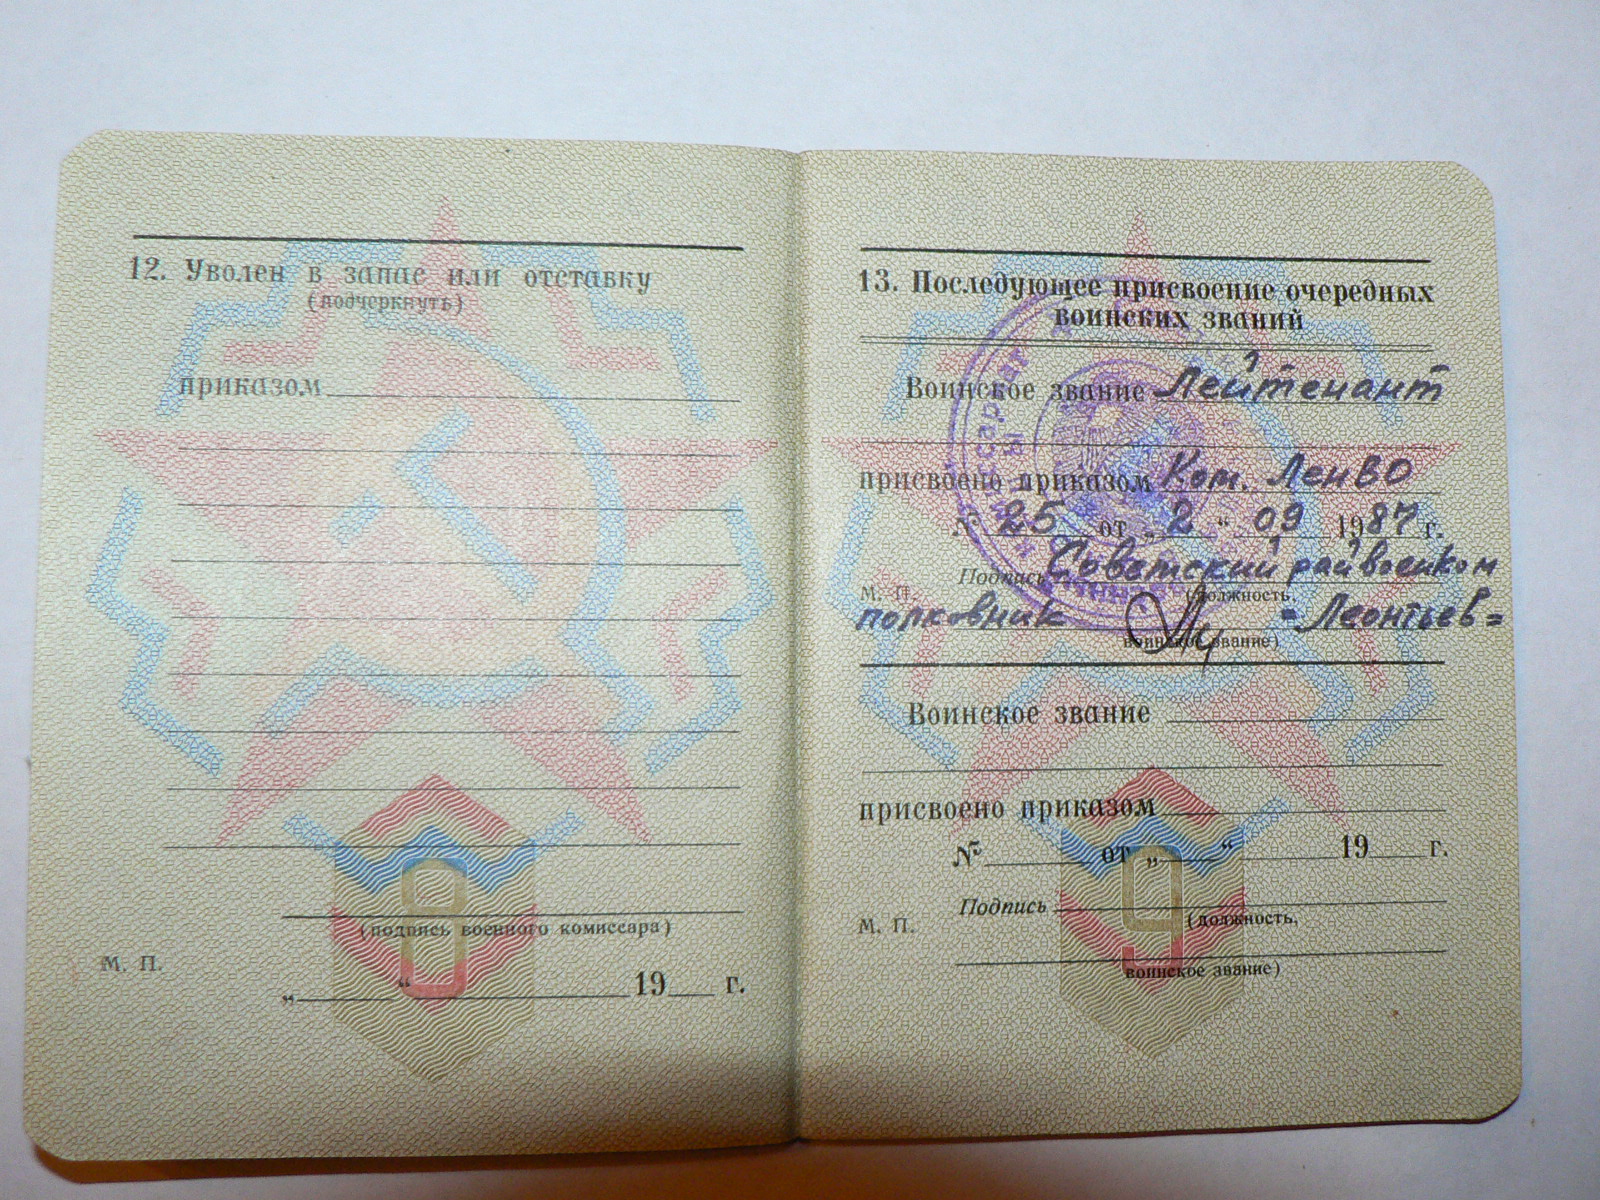 12. Уволен в запас или отставку
(подчеркнуть)
приказом
(подпись военного комиссара)
М. П.
„ “ 19 г.
8
13. Последующее присвоение очередных
воинских званий
Воинское звание Лейтенант
присвоено приказом Ком. ЛенВО
№ 25 от „2“ 09 1987 г.
Подпись Советский райвоенком
М. П. (должность,
полковник =Леонтьев=
воинское звание)
Воинское звание
присвоено приказом
№ от „ “ 19 г.
Подпись
М. П. (должность,
воинское звание)
9